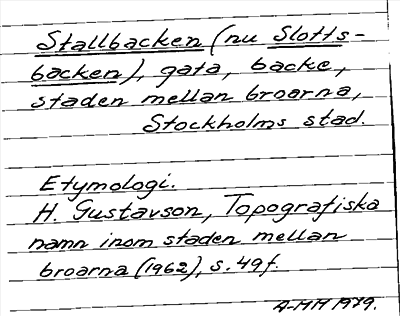 Stallbacken (nu Slotts-
backen), gata, backe,
staden mellan broarna,
Stockholms stad.
Etymologi.
H. Gustavson, Topografiska
namn inom staden mellan
broarna (1962), s. 49f.
A-MH 1979.